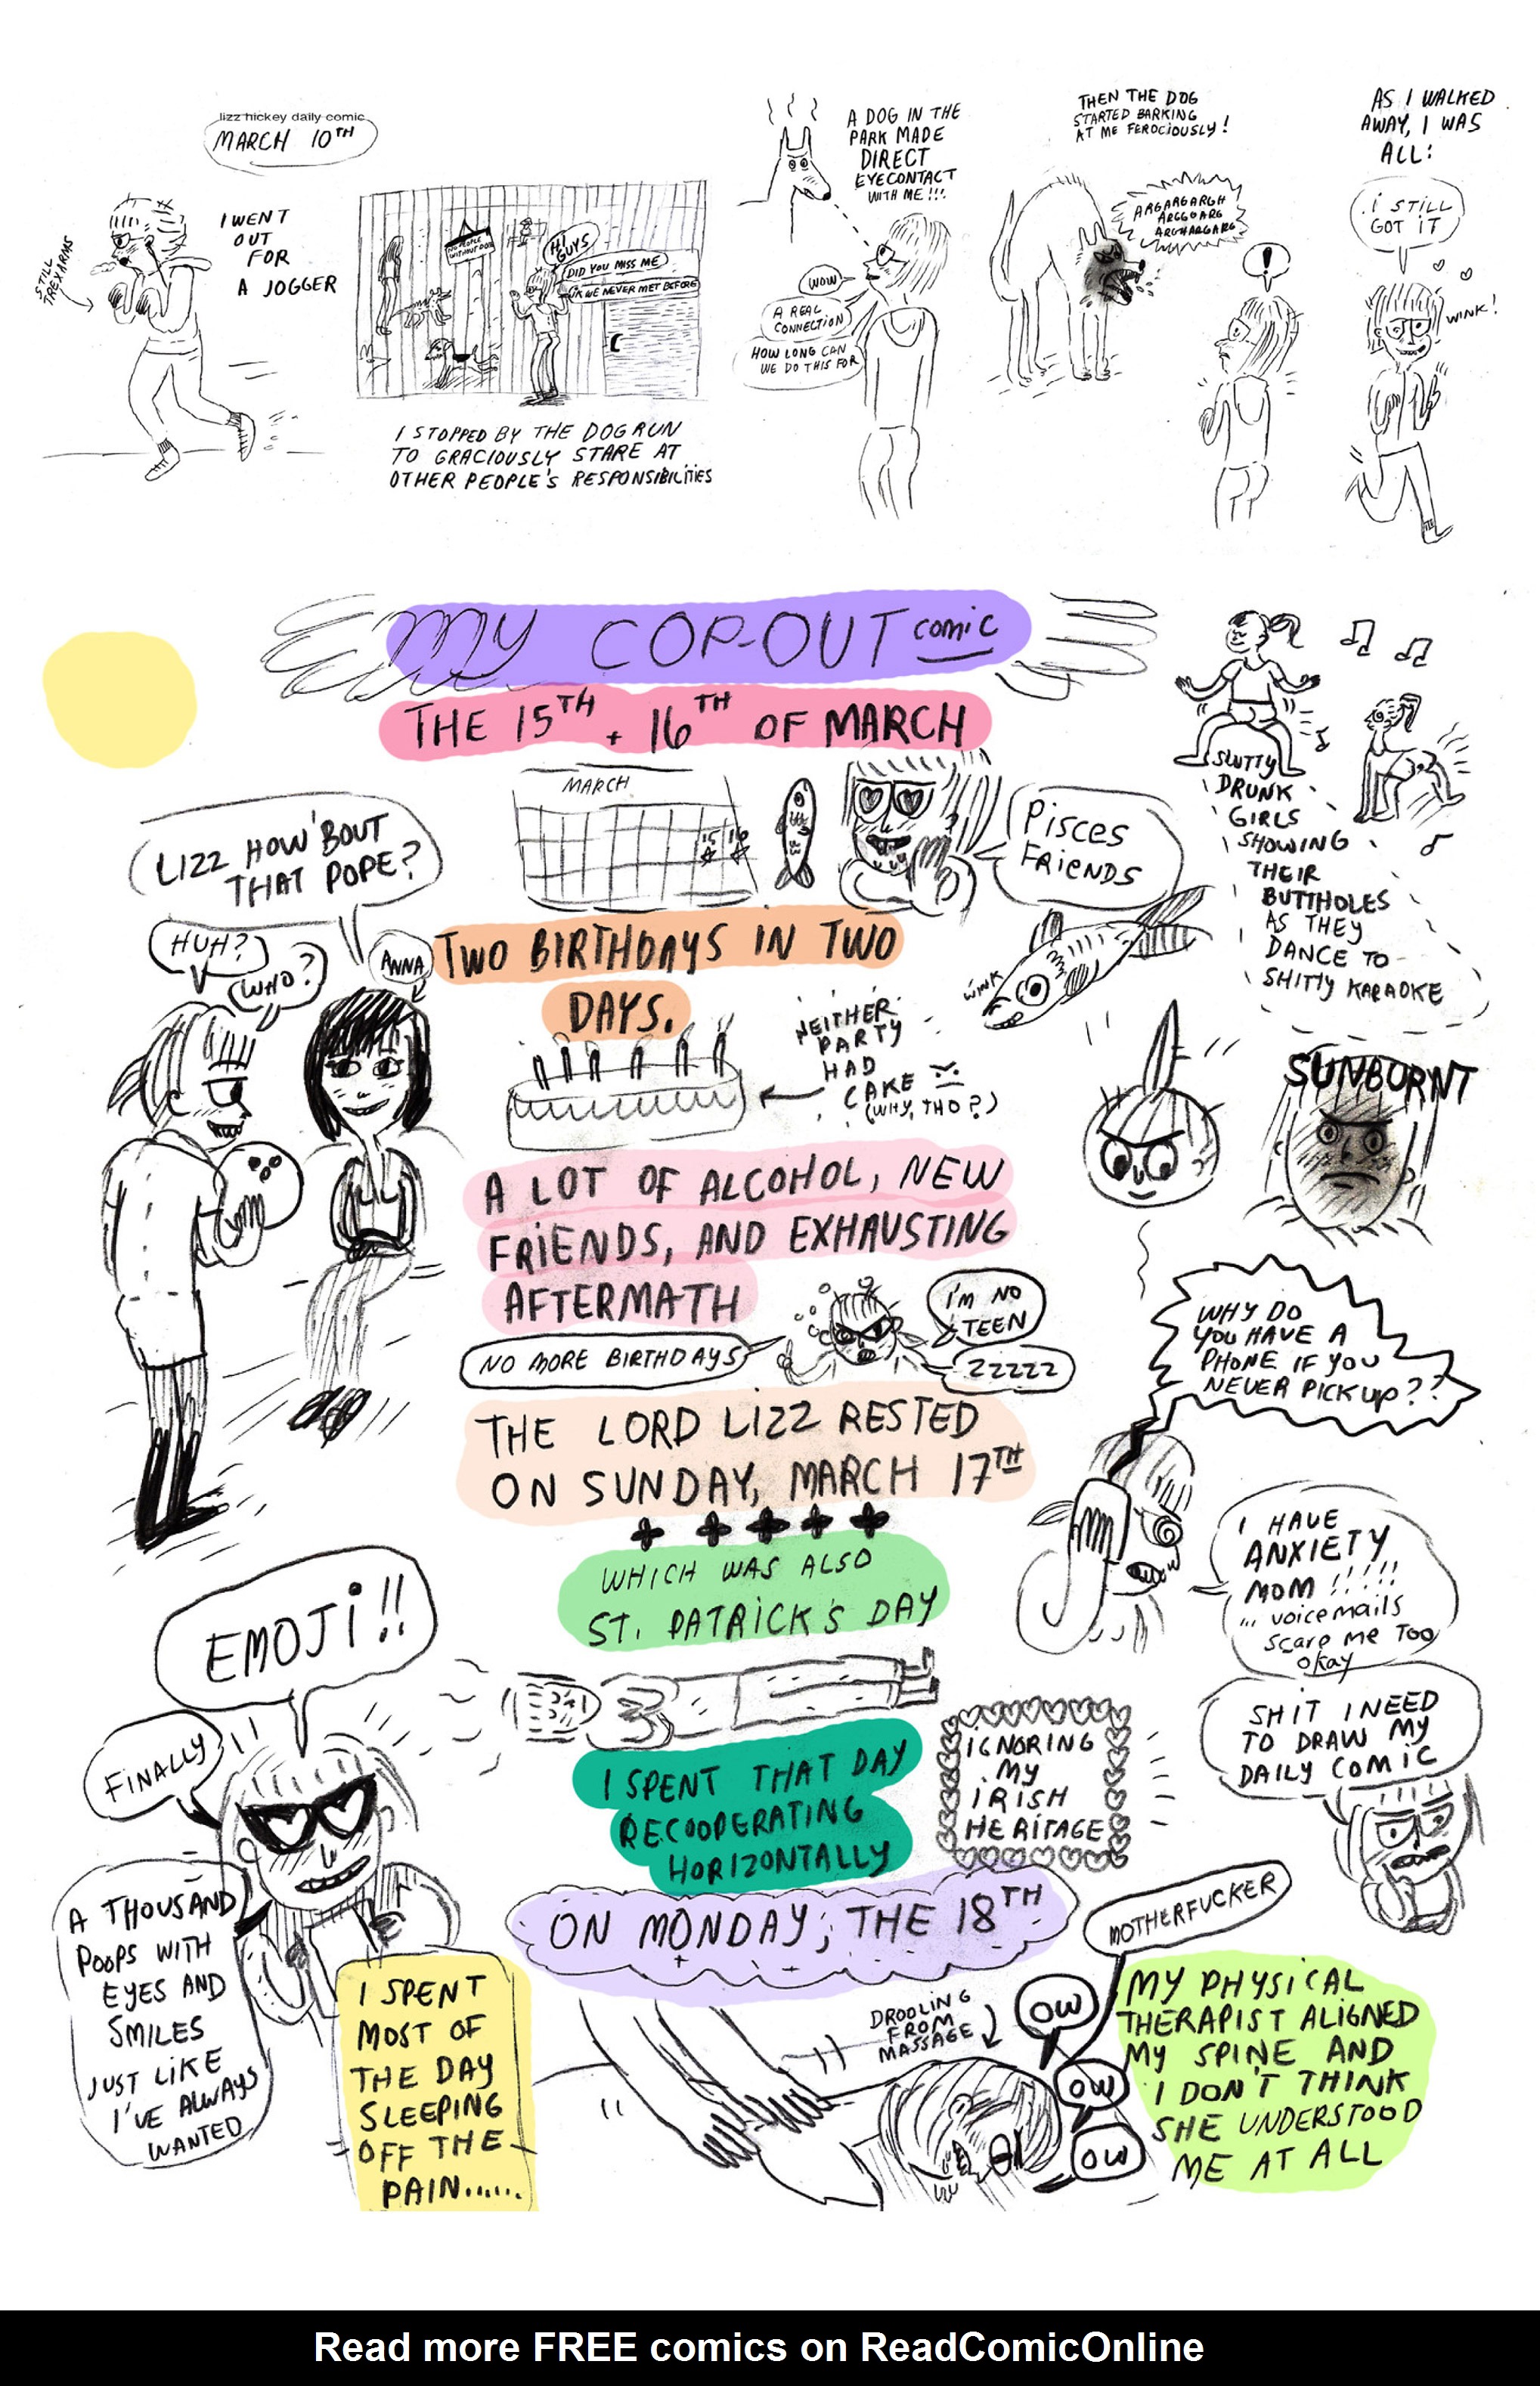 lizz hickey daily comic
MARCH 10TH
STILL
TREXARMS
I WENT
OUT
FOR
A JOGGER
NO PEOPLE
WITHOUT DOG
HI
GUYS
DID YOU MISS ME
JK WE NEVER MET BEFORE
I STOPPED BY THE DOG RUN
TO GRACIOUSLY STARE AT
OTHER PEOPLE'S RESPONSIBILITIES
A DOG IN THE
PARK MADE
DIRECT
EYECONTACT
WITH ME!!!
WOW
A REAL
CONNECTION
HOW LONG CAN
WE DO THIS FOR
THEN THE DOG
STARTED BARKING
AT ME FEROCIOUSLY!
ARGARGARGH
ARGGOARG
ARGHARGARG
!
AS I WALKED
AWAY, I WAS
ALL:
I STILL
GOT IT
WINK!
MY COP-OUT comic
THE 15TH + 16TH OF MARCH
MARCH
15 16
PISCES
FRIENDS
LIZZ HOW 'BOUT
THAT POPE?
HUH?
WHO?
ANNA
TWO BIRTHDAYS IN TWO
DAYS.
WINK
SLUTTY
DRUNK
GIRLS
SHOWING
THEIR
BUTTHOLES
AS THEY
DANCE TO
SHITTY KARAOKE
NEITHER
PARTY
HAD
CAKE
(WHY, THO?)
SUNBURNT
A LOT OF ALCOHOL, NEW
FRIENDS, AND EXHAUSTING
AFTERMATH
NO MORE BIRTHDAYS
I'M NO
TEEN
ZZZZZ
THE LORD LIZZ RESTED
ON SUNDAY, MARCH 17TH
WHICH WAS ALSO
ST. PATRICK'S DAY
WHY DO
YOU HAVE A
PHONE IF YOU
NEVER PICK UP??
I HAVE
ANXIETY
MOM !!!!!
... voicemails
scare me too
okay
I SPENT THAT DAY
RECOOPERATING
HORIZONTALLY
IGNORING
MY
IRISH
HERITAGE
SHIT I NEED
TO DRAW MY
DAILY COMIC
EMOJI!!
FINALLY
A THOUSAND
POOPS WITH
EYES AND
SMILES
JUST LIKE
I'VE ALWAYS
WANTED
I SPENT
MOST OF
THE DAY
SLEEPING
OFF THE
PAIN......
ON MONDAY, THE 18TH
DROOLING
FROM
MASSAGE
MOTHERFUCKER
OW
OW
OW
MY PHYSICAL
THERAPIST ALIGNED
MY SPINE AND
I DON'T THINK
SHE UNDERSTOOD
ME AT ALL
Read more FREE comics on ReadComicOnline